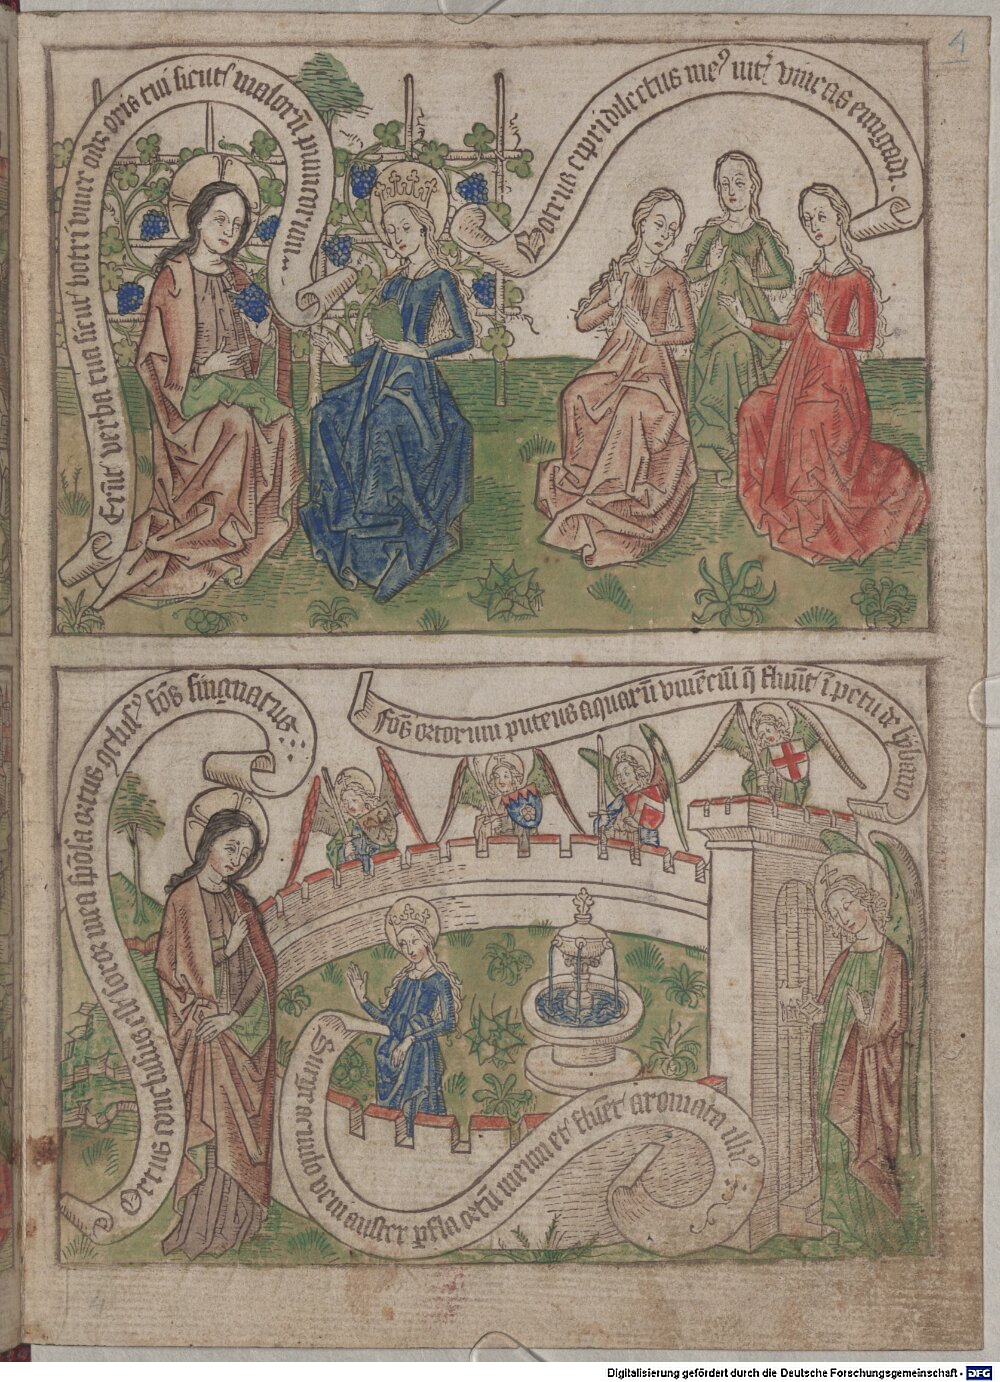 4
Erūt verba tua sicut votri vinee odor oris tui sicut malorū punicorum
Botrus cipri dilectus me⁹ int̄ vineas enngadi.
Ortus cōclusus est soror mea spōsa ortus cōclus⁹ fōs singnatus
fōs ortorum puteus aquarū vivēciū q̄ fluūt ī petu de lybano
Surge aquilo veni auster pfla ortū meum et fluēt aromata illi⁹
4
Digitalisierung gefördert durch die Deutsche Forschungsgemeinschaft - DFG